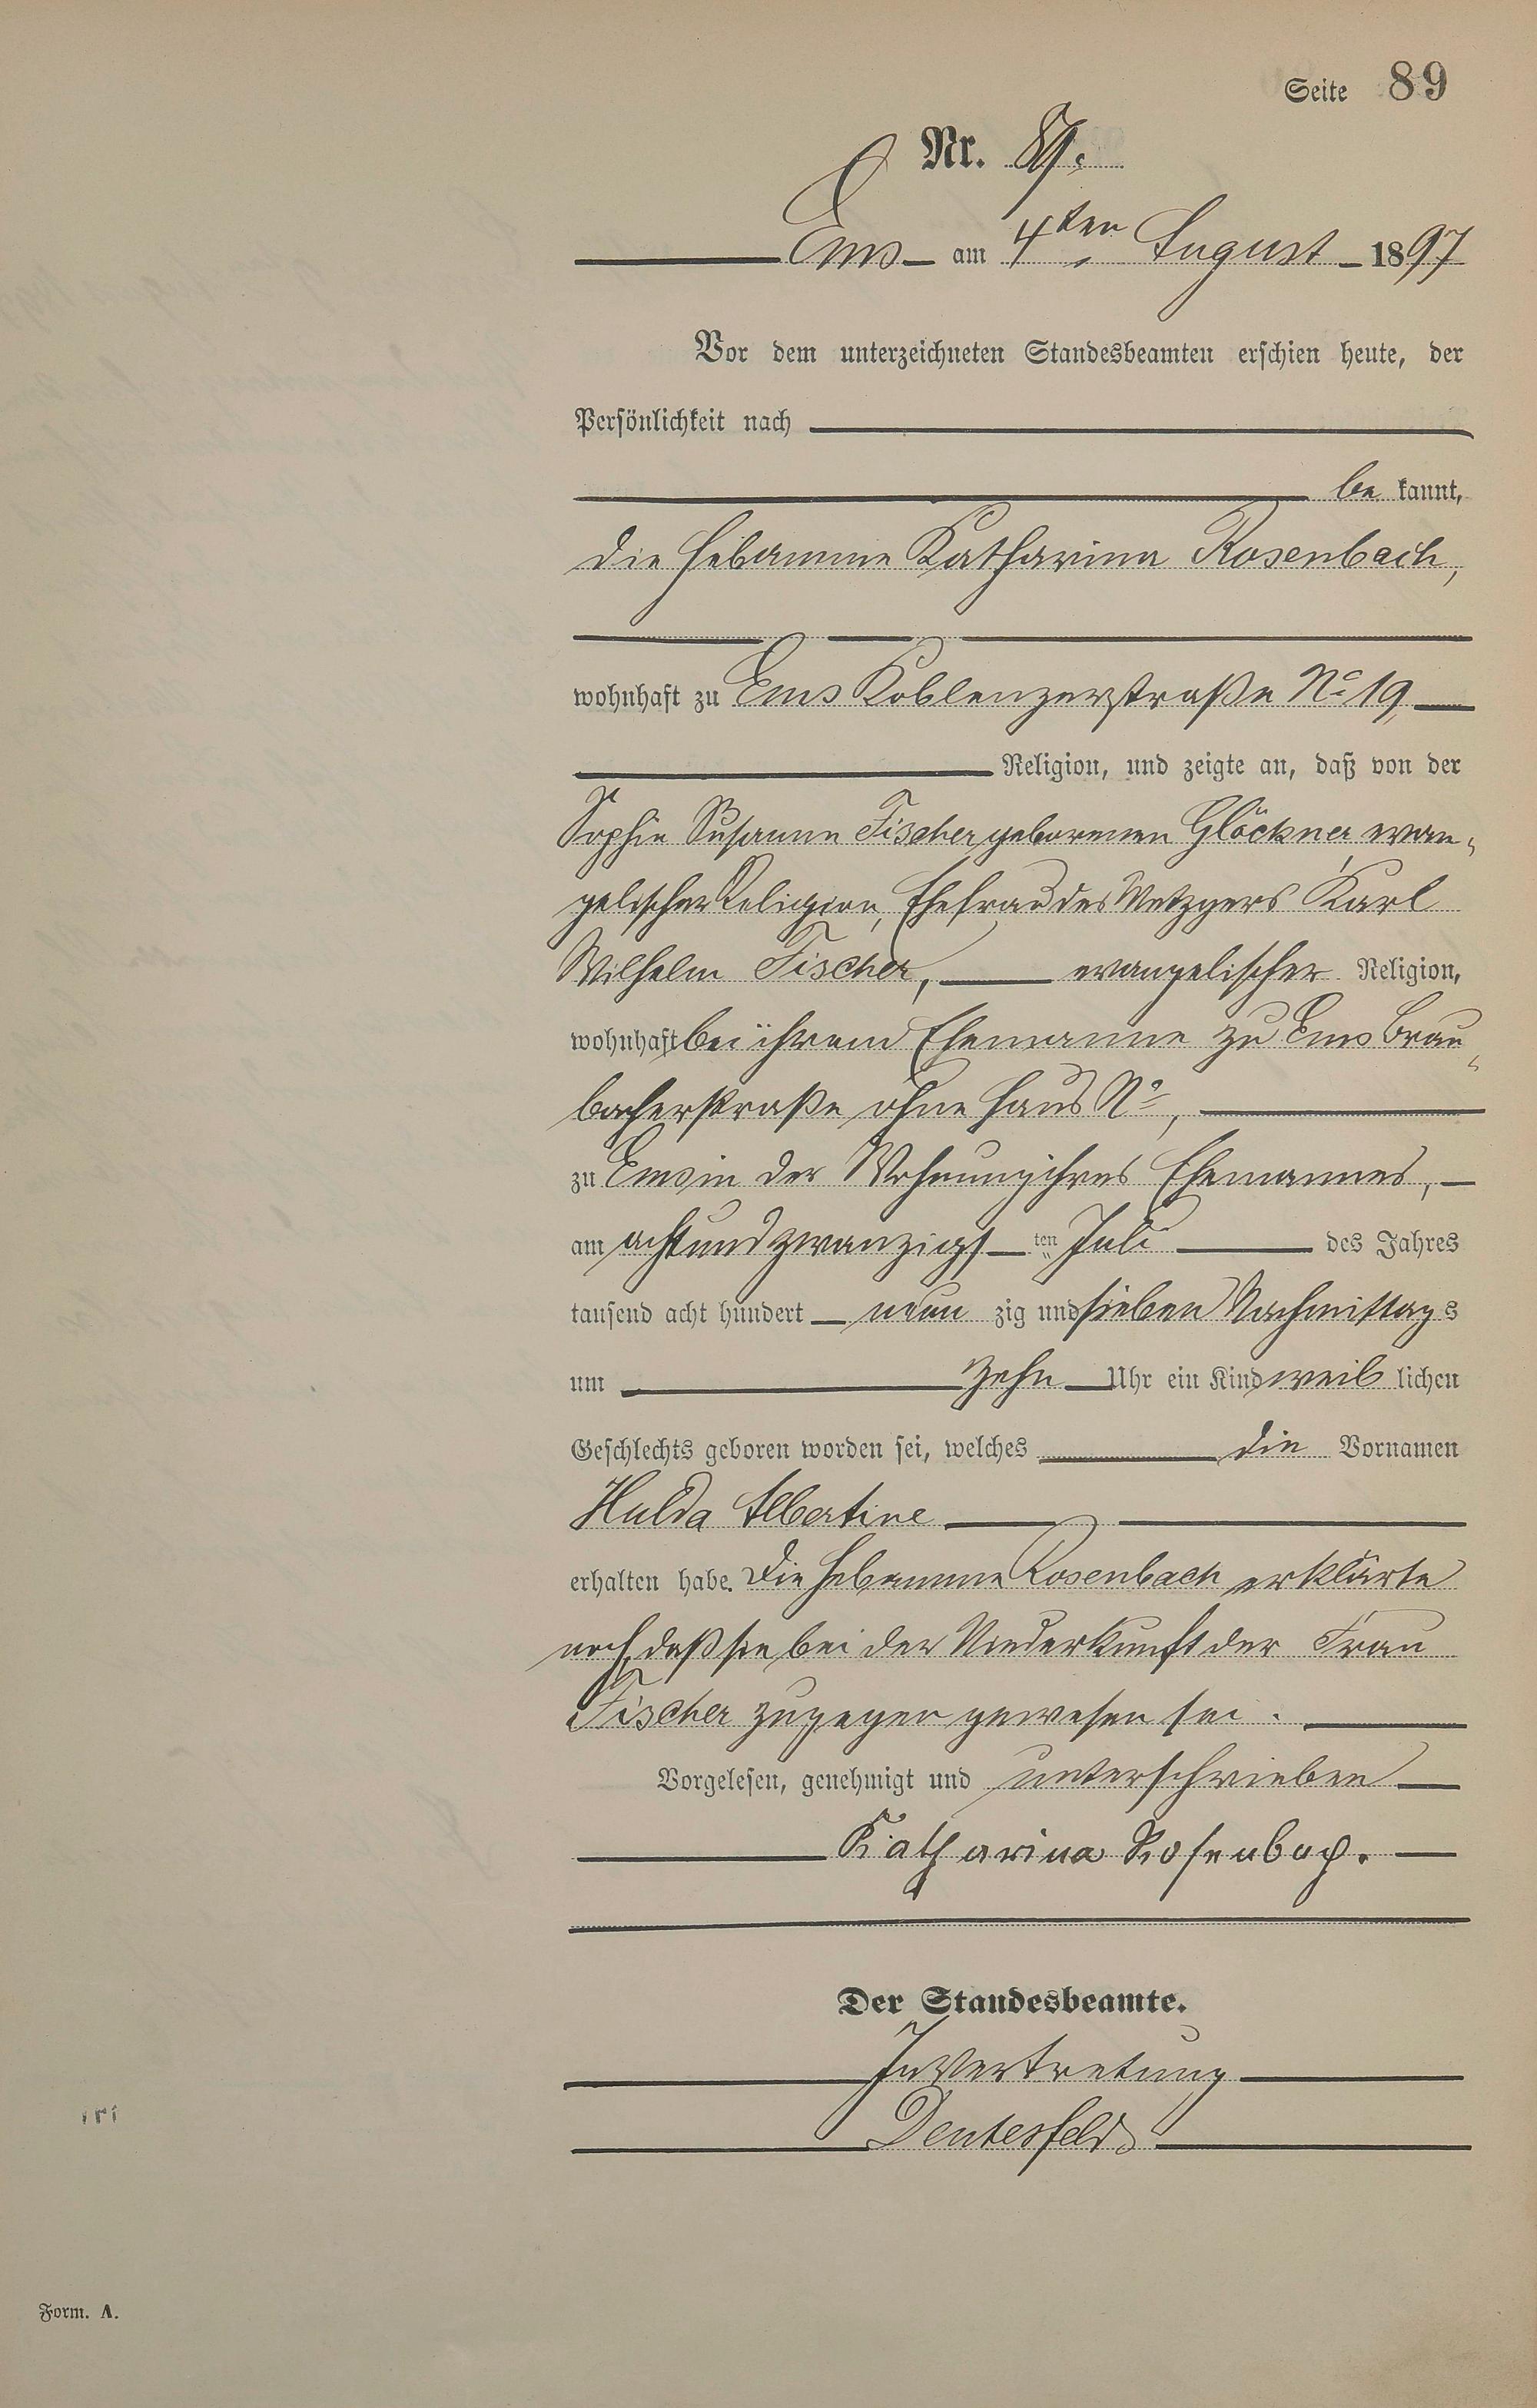 Seite 89
Nr. 89.
Ems am 4ten August 1897
Vor dem unterzeichneten Standesbeamten erschien heute, der
Persönlichkeit nach
be kannt,
die Hebamme Katharina Rosenbach,
wohnhaft zu Ems Koblenzerstraße No 19,
Religion, und zeigte an, daß von der
Sophie Susanne Fischer geborenen Glöckner evan-
gelischer Religion, Ehefrau des Metzgers Karl
Wilhelm Fischer, evangelischer Religion,
wohnhaft bei ihrem Ehemanne zu Ems Brau-
bacherstraße ohne Haus No,
zu Ems in der Wohnung ihres Ehemannes,
am achtundzwanzigs ten Juli des Jahres
tausend acht hundert neun zig und sieben Nachmittags
um zehn Uhr ein Kind weib lichen
Geschlechts geboren worden sei, welches die Vornamen
Hulda Albertine
erhalten habe. Die Hebamme Rosenbach erklärte
noch, daß sie bei der Niederkunft der Frau
Fischer zugegen gewesen sei.
Vorgelesen, genehmigt und unterschrieben
Katharina Rosenbach.
Der Standesbeamte.
In Vertretung
Form. A.